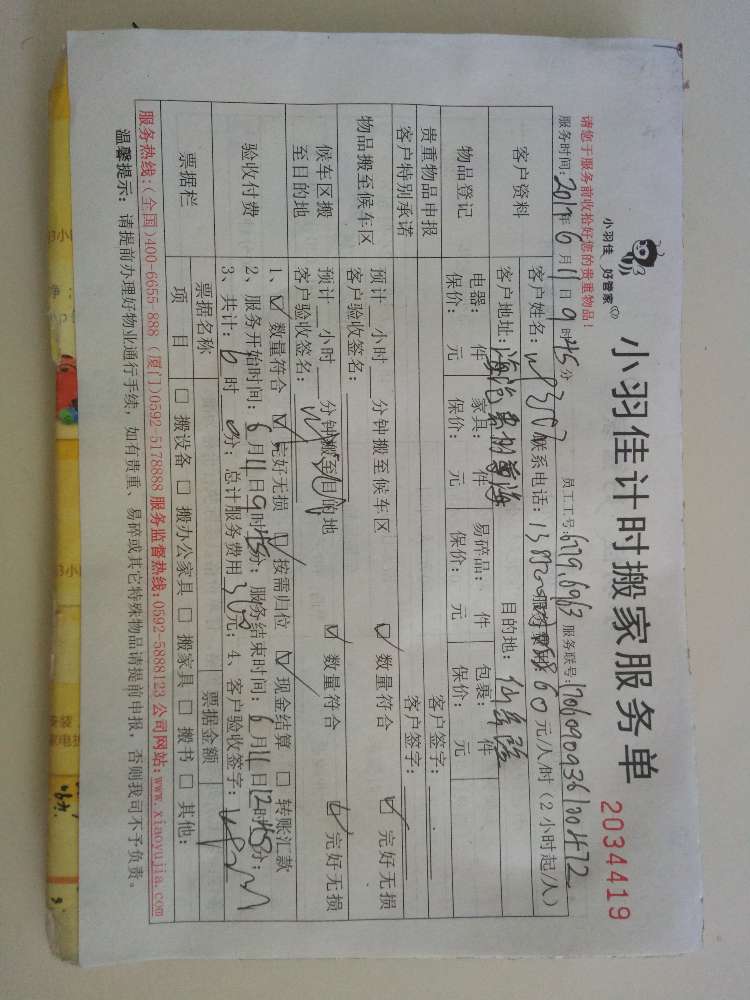 小羽佳 好管家
小羽佳计时搬家服务单
2034419
请您于服务前收拾好您的贵重物品!
员工工号: 服务联号:
服务时间: 年6月11日9时45分
客户资料
客户姓名: 联系电话: 60元/人/时(2小时起/人)
客户地址: 目的地:
物品登记
电器: 件 家具: 件 易碎品: 件 包裹: 件
保价: 元 保价: 元 保价: 元 保价: 元
贵重物品申报 客户签字:
客户特别承诺 客户签字:
物品搬至候车区
预计__小时__分钟搬至候车区 ☑ 数量符合 ☑ 完好无损
客户验收签名:
候车区搬至目的地
预计__小时__分钟搬至目的地 ☑ 数量符合 ☑ 完好无损
客户验收签名:
验收付费
1、☑ 数量符合 ☑ 完好无损 ☑ 按需归位 ☑ 现金结算 □ 转账汇款
2、服务开始时间:6月11日9时45分; 服务结束时间:6月11日12时45分;
3、共计:6时0分; 总计服务费用 元; 4、客户验收签字:
票据栏
票据名称 票据金额
项目 □ 搬设备 □ 搬办公家具 □ 搬家具 □ 搬书 □ 其他:
服务热线:(全国)400-6655-888(厦门)0592-5178888 服务监督热线:0592-5888123 公司网站:www.xiaoyujia.com
温馨提示: 请提前办理好物业通行手续,如有贵重、易碎或其它特殊物品请提前申报,否则我司不予负责。